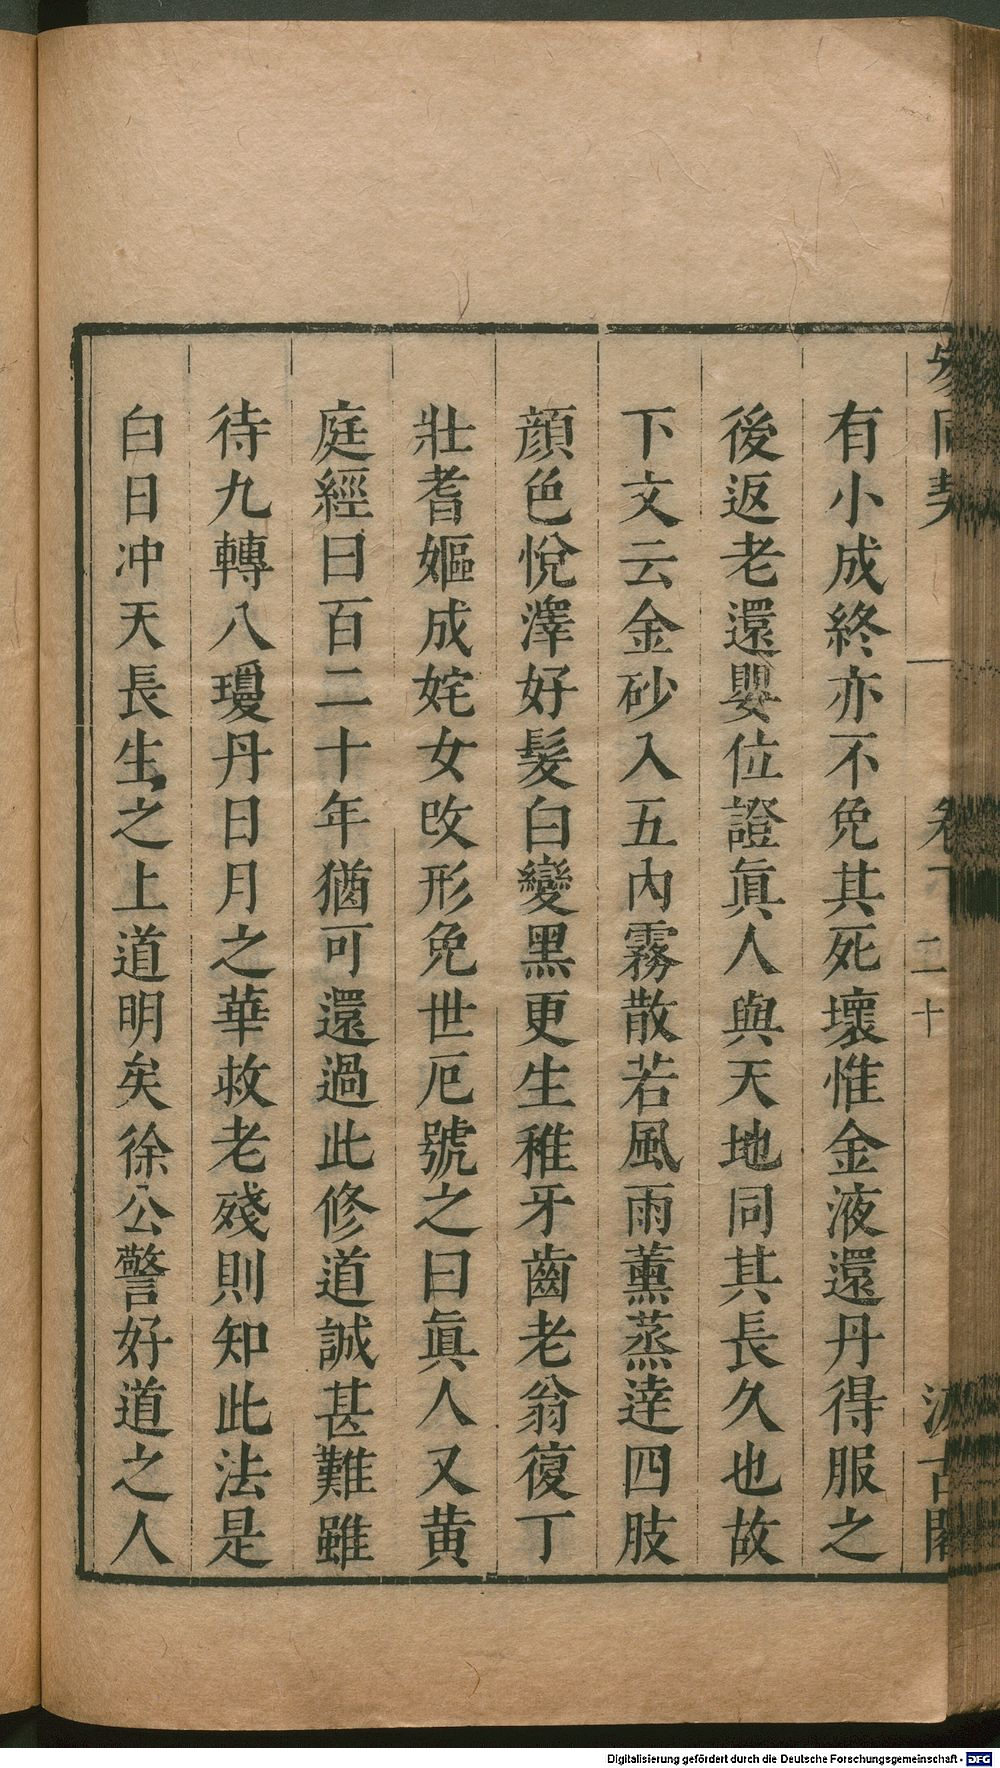 參同契 卷下 二十 汲古閣
有小成終亦不免其死壞惟金液還丹得服之
後返老還嬰位證眞人與天地同其長久也故
下文云金砂入五內霧散若風雨薰蒸達四肢
顏色悅澤好髮白變黑更生稚牙齒老翁復丁
壯耆嫗成姹女攺形免世厄號之曰眞人又黄
庭經曰百二十年猶可還過此修道誠甚難雖
待九轉八瓊丹日月之華救老殘則知此法是
白日冲天長生之上道明矣徐公警好道之人
Digitalisierung gefördert durch die Deutsche Forschungsgemeinschaft - DFG